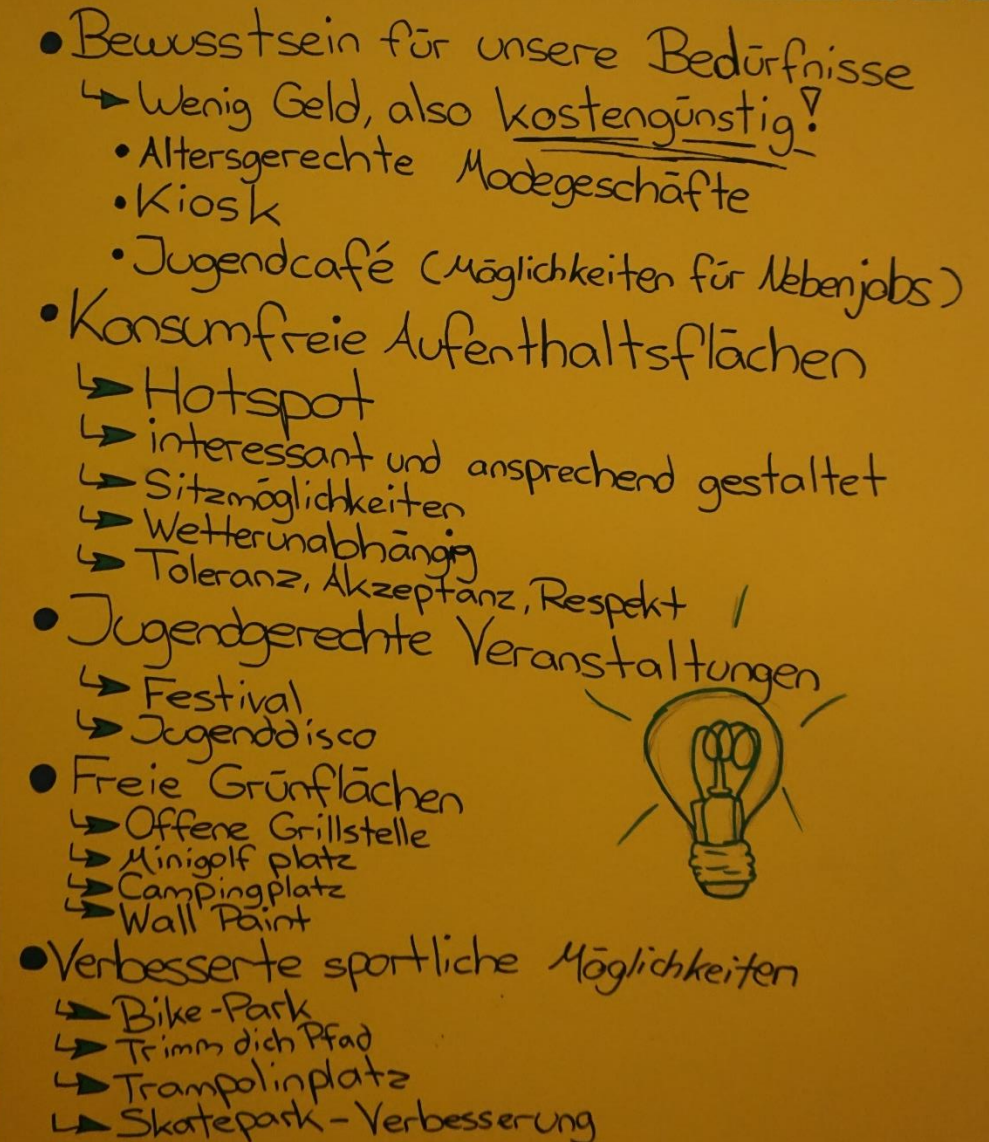 • Bewusstsein für unsere Bedürfnisse
↳ Wenig Geld, also kostengünstig!
• Altersgerechte Modegeschäfte
• Kiosk
• Jugendcafé (Möglichkeiten für Nebenjobs)
• Konsumfreie Aufenthaltsflächen
↳ Hotspot
↳ interessant und ansprechend gestaltet
↳ Sitzmöglichkeiten
↳ Wetterunabhängig
↳ Toleranz, Akzeptanz, Respekt
• Jugendgerechte Veranstaltungen
↳ Festival
↳ Jugenddisco
• Freie Grünflächen
↳ Offene Grillstelle
↳ Minigolf platz
↳ Campingplatz
↳ Wall Paint
• Verbesserte sportliche Möglichkeiten
↳ Bike-Park
↳ Trimm dich Pfad
↳ Trampolinplatz
↳ Skatepark-Verbesserung